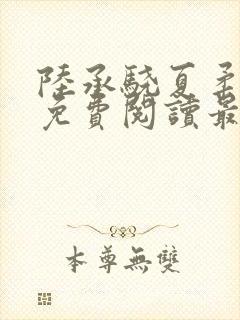 陸承驍夏柔
免費閱讀最
本尊無雙